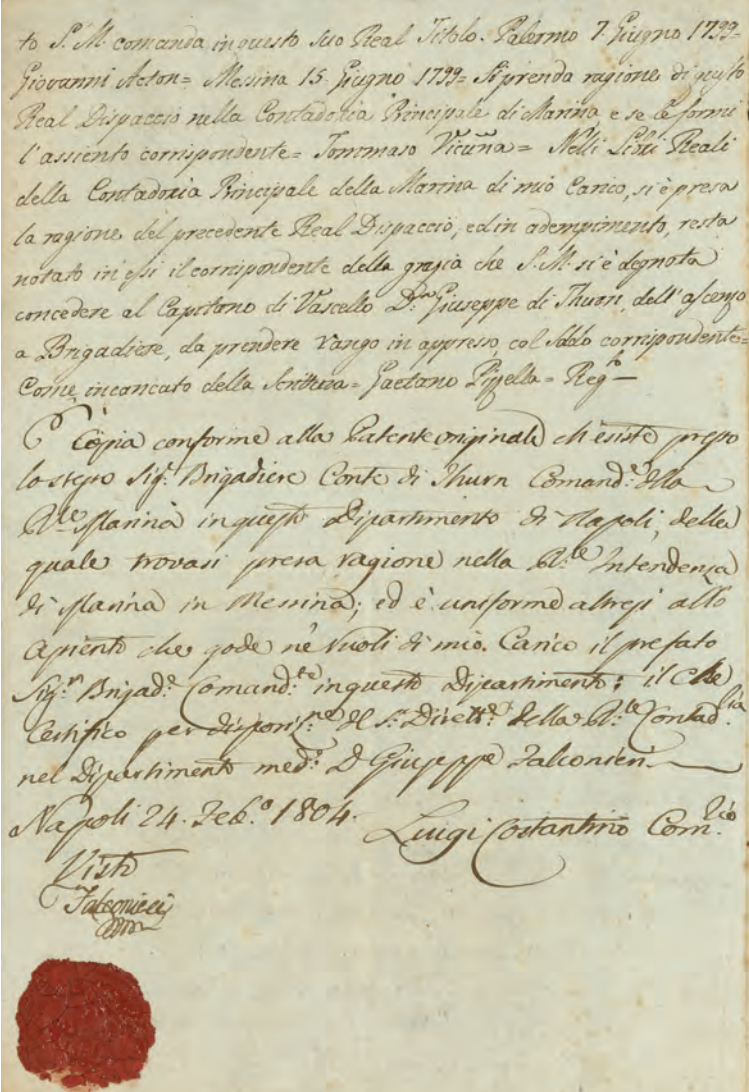 to S. M. comanda in questo suo Real Titolo. Palermo 7. Giugno 1799=
Giovanni Acton= Messina 15. Giugno 1799= Si prenda ragione di questo
Real Dispaccio nella Contadoria Principale di Marina e se le formi
l'assiento corrispondente= Tommaso Vicuña= Nelli Libri Reali
della Contadoria Principale della Marina di mio Carico, si è presa
la ragione del precedente Real Dispaccio, ed in adempimento, resta
notato in essi il corrispondente della grazia che S. M. si è degnota
concedere al Capitano di Vascello D.n Giuseppe di Thurn, dell'ascenzo
a Brigadiere, da prendere rango in appresso, col soldo corrispondente=
Come incaricato della Scrittura= Gaetano Pizzella= Reg.to
È Copia conforme alla Patente originale ch'esiste presso
lo stesso Sig.r Brigadiere Conte di Thurn Comand.e della
R.le Marina in questo Dipartimento di Napoli, della
quale trovasi presa ragione nella R.le Intendenza
di Marina in Messina; ed è uniforme altresi allo
Assiento che gode ne' Ruoli di mio Carico il prefato
Sig.r Brigad.e Comand.te in questo Dipartimento; il che
Certifico per disposiz.ne del S.r Dirett.e della R.le Contad.ria
nel Dipartimento med.o D Giuseppe Falconieri.
Napoli 24. Feb.o 1804. Luigi Costantino Com.rio
Visto
Falconieri